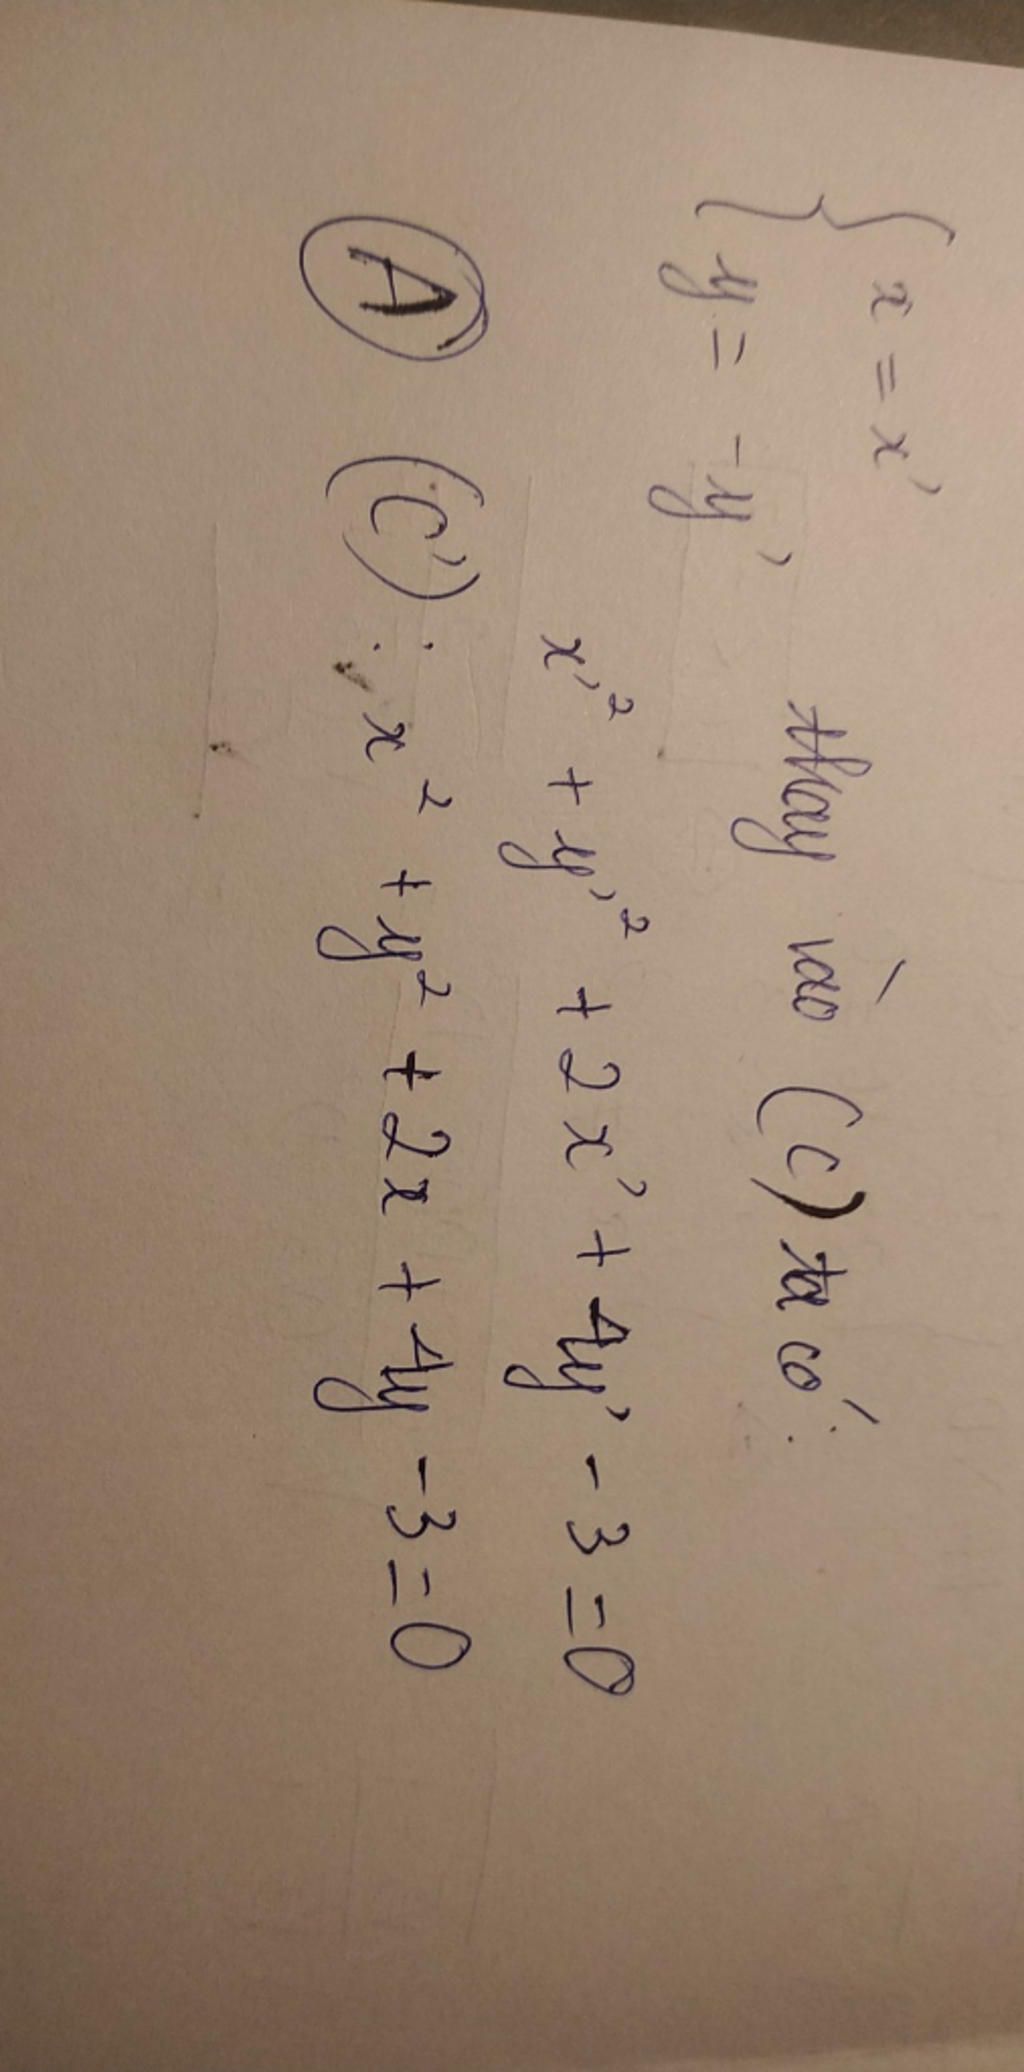 { x = x'
y = -y'
thay vào (C) ta có:
x'² + y'² + 2x' + 4y' - 3 = 0
A (C'): x² + y² + 2x + 4y - 3 = 0